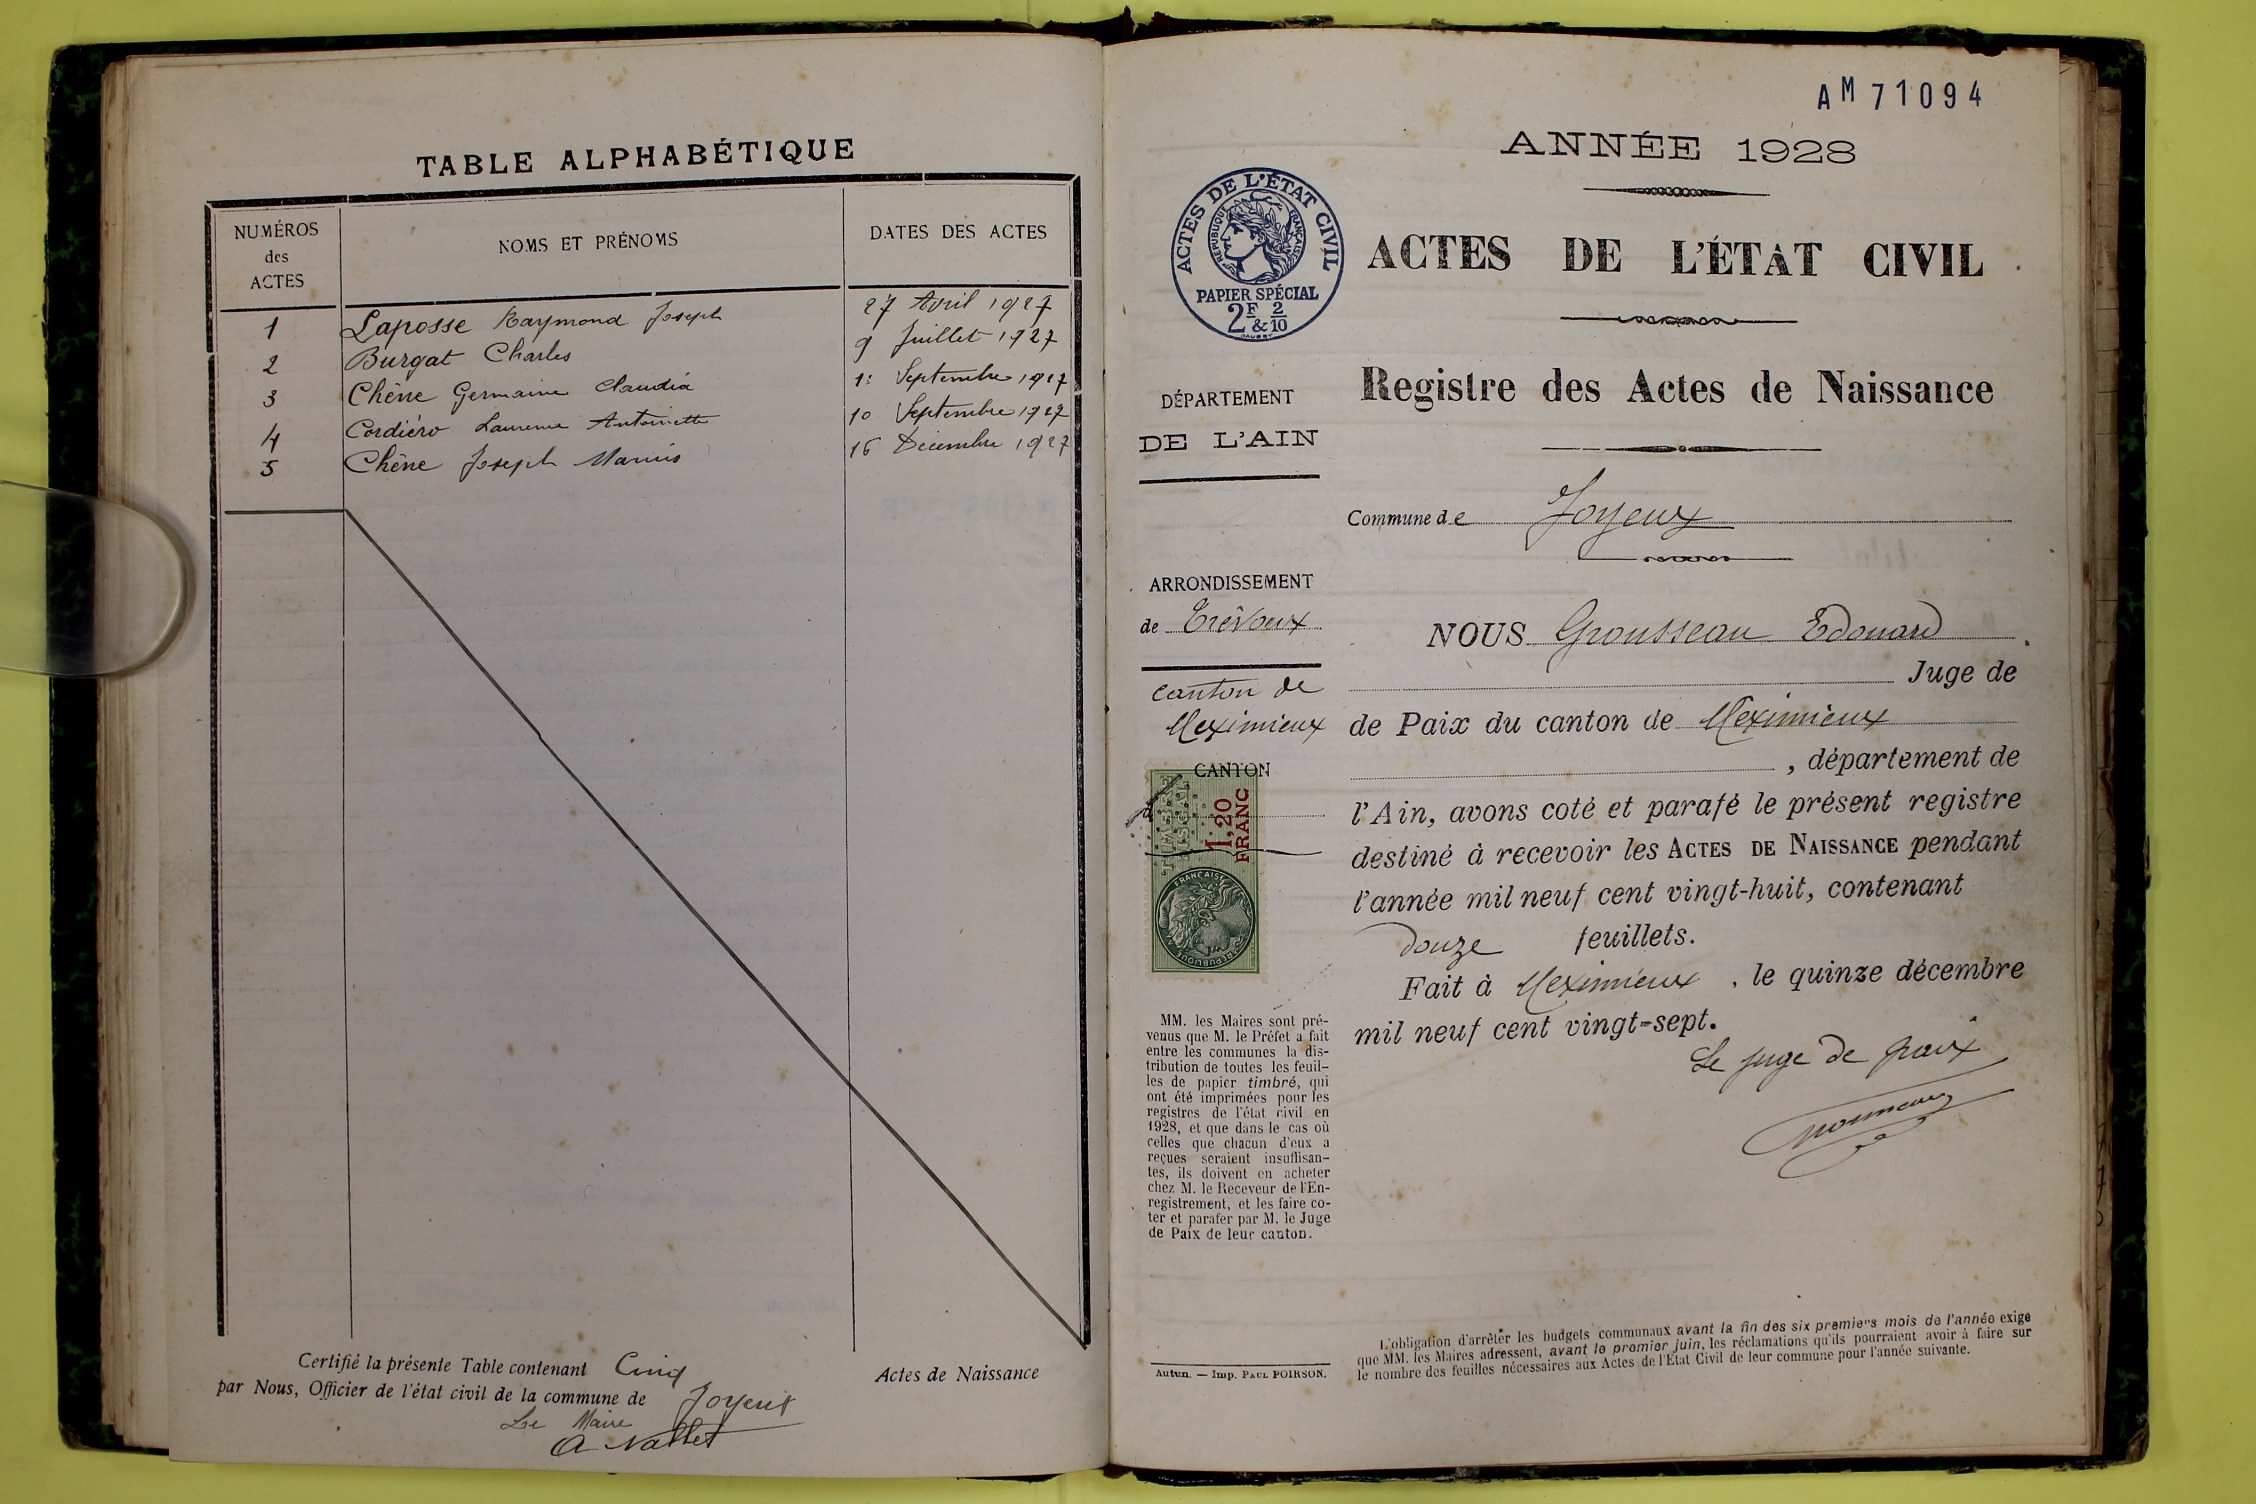 TABLE ALPHABÉTIQUE
NUMÉROS
des
ACTES
NOMS ET PRÉNOMS
DATES DES ACTES
1 Laposse Raymond Joseph 27 Avril 1927
2 Burgat Charles 9 Juillet 1927
3 Chêne Germaine Claudia Septembre 1927
4 Cordiéro Antoinette 10 Septembre 1927
5 Chêne Joseph Marius 16 Décembre 1927
Certifié la présente Table contenant Cinq
Actes de Naissance
par Nous, Officier de l'état civil de la commune de Joyeux
Le Maire
AM 71094
ANNÉE 1928
ACTES DE L'ÉTAT CIVIL
RÉPUBLIQUE FRANÇAISE
PAPIER SPÉCIAL
2F & 2/10
ACTES DE L'ÉTAT CIVIL
Registre des Actes de Naissance
DÉPARTEMENT
DE L'AIN
Commune de Joyeux
ARRONDISSEMENT
de Trévoux
canton de
Meximieux
CANTON
d
TIMBRE
FISCAL
1,20
FRANC
RÉPUBLIQUE FRANÇAISE
NOUS Grousseau Edouard
Juge de
de Paix du canton de Meximieux
, département de
l'Ain, avons coté et parafé le présent registre
destiné à recevoir les ACTES DE NAISSANCE pendant
l'année mil neuf cent vingt-huit, contenant
douze feuillets.
Fait à Meximieux, le quinze décembre
mil neuf cent vingt-sept.
Le juge de paix
MM. les Maires sont pré-
venus que M. le Préfet a fait
entre les communes la dis-
tribution de toutes les feuil-
les de papier timbré, qui
ont été imprimées pour les
registres de l'état civil en
1928, et que dans le cas où
celles que chacun d'eux a
reçues seraient insuffisan-
tes, ils doivent en acheter
chez M. le Receveur de l'En-
registrement, et les faire co-
ter et parafer par M. le Juge
de Paix de leur canton.
Autun. — Imp. PAUL POIRSON.
L'obligation d'arrêter les budgets communaux avant la fin des six premiers mois de l'année exige
que MM. les Maires adressent, avant le premier juin, les réclamations qu'ils pourraient avoir à faire sur
le nombre des feuilles nécessaires aux Actes de l'État Civil de leur commune pour l'année suivante.